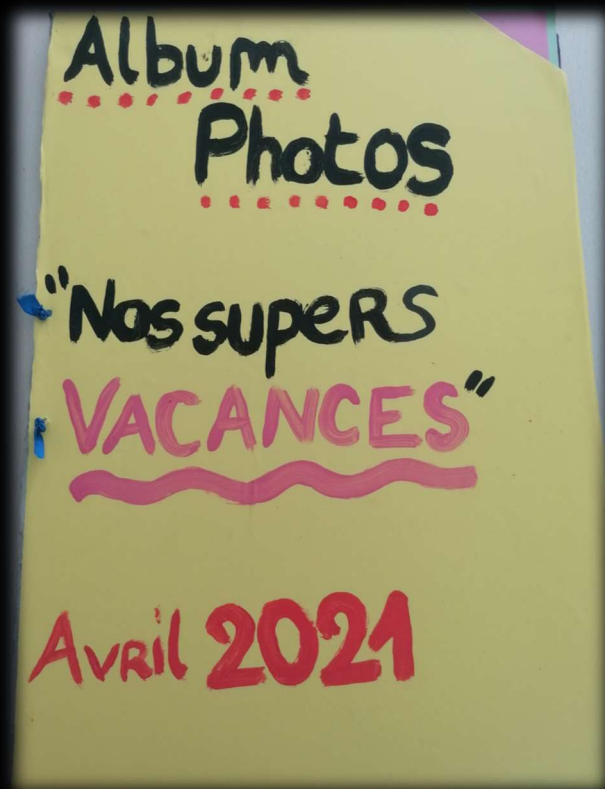 Album
Photos
"Nos supeRS
VACANCES"
AvRil 2021